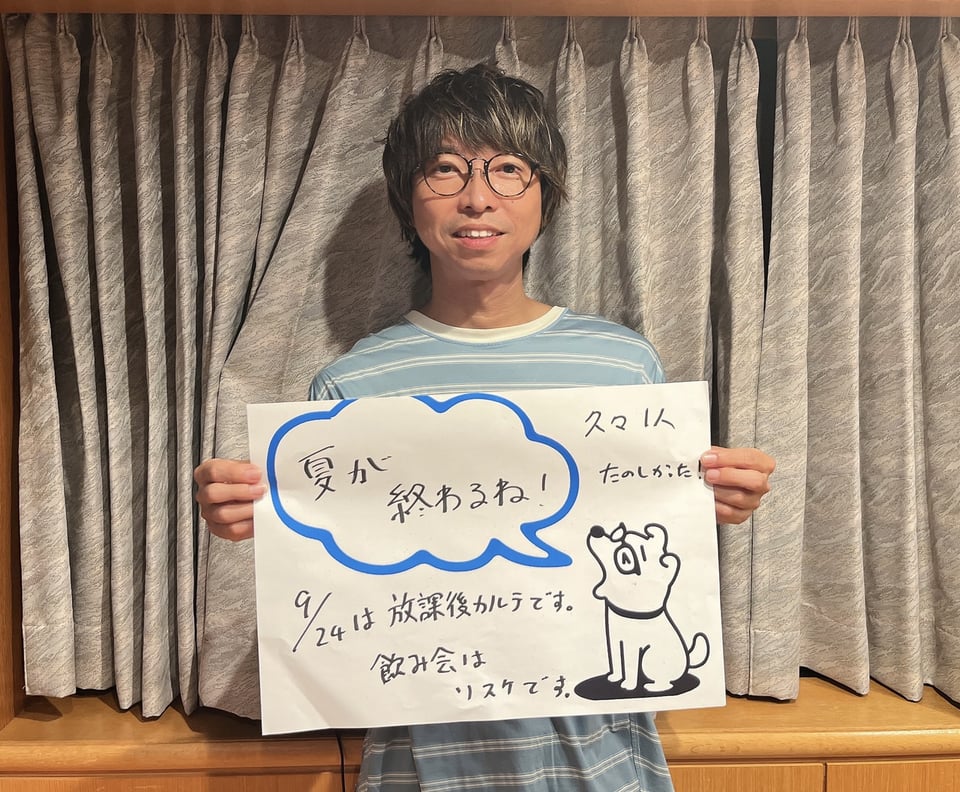 夏が
終わるね!
久々 1人
たのしかった!
9/24は 放課後カルテです。
飲み会は
リスケです。